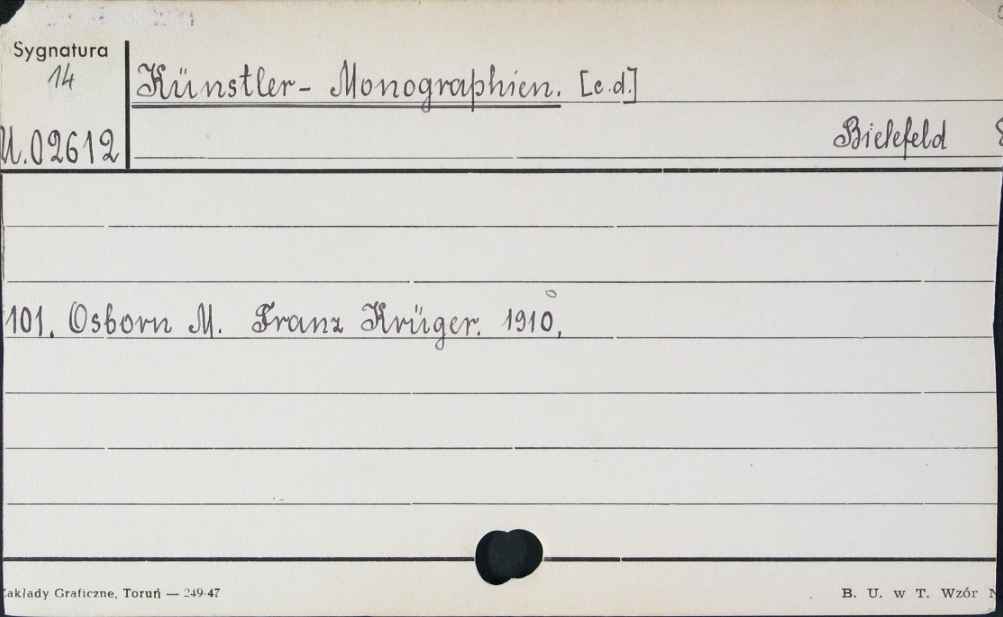 Sygnatura
14
Künstler- Monographien. [c.d.]
Bielefeld
U.02612
101. Osborn M. Franz Krüger. 1910,
Zakłady Graficzne, Toruń — 249-47
B. U. w T. Wzór